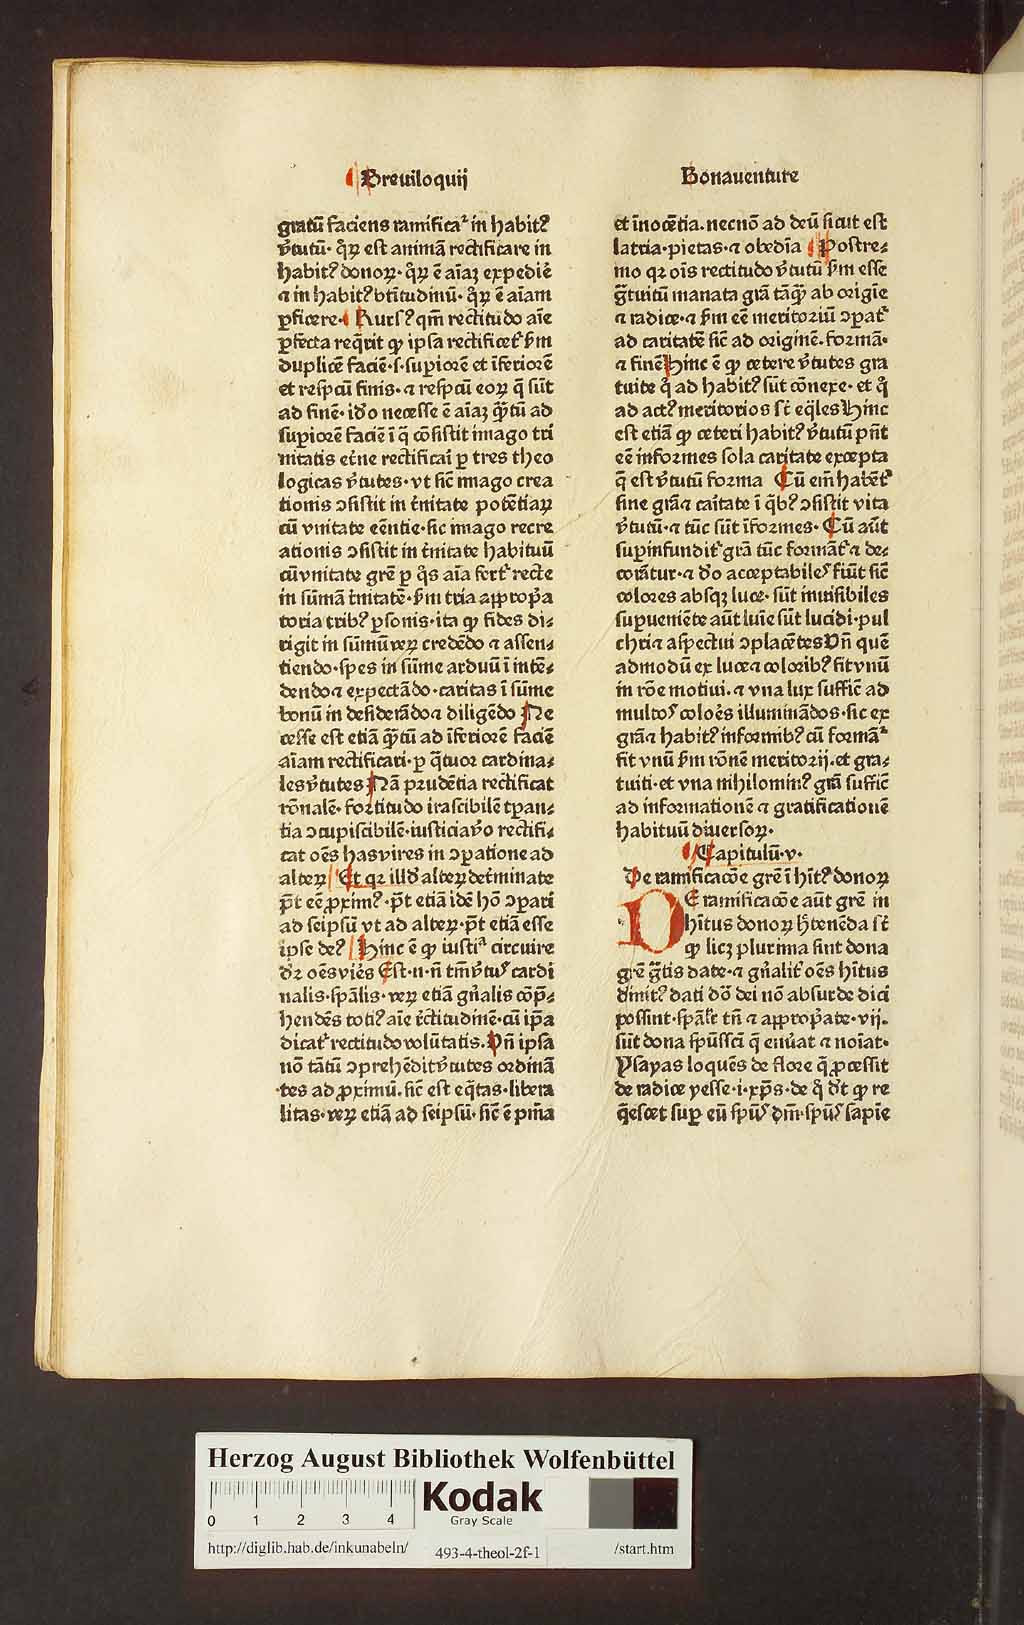 Breuiloquij
Bonauenture
gratū faciens ramificaᷣ in habitꝰ
v̄tutū· q̊ꝝ est animā rectificare in
habitꝰ donoꝝ· q̊ꝝ ē aīaꝫ expediē
⁊ in habitꝰ btītudinū· q̊ꝝ ē aīam
ꝑficere· Rursꝰ qm̄ rectitudo aīe
ꝑfecta req̄rit ꝙ ipsa rectificet᷑ ẜm
duplicē faciē·s·superiorē et īferiorē
et respcū finis· ⁊ respcū eoꝝ q̄ sūt
ad finē· iđo necesse ē aīaꝫ q̄ꝫtū ad
suꝑiorē faciē ī q̄ cōsistit imago tri
nitatis et̄ne rectificaī ꝑ tres theo
logicas v̄tutes· vt sic̄ imago crea
tionis ↄsistit in t̄nitate potētiaꝝ
cū vnitate eēntie· sic imago recre
ationis ↄsistit in t̄nitate habituū
cū vnitate grē ꝑ q̊s aīa fert᷑ recte
in sūmā t̄nitatē· ẜm tria approp̄a
toria tribꝰ ꝑsonis· ita ꝙ fides di⸗
rigit in sūmū veꝝ credēdo ⁊ assen⸗
tiendo· spes in sūme arduū ī intē⸗
dendo ⁊ expectādo· caritas ī sūme
bonū in desiderādo ⁊ diligēdo Ne
cesse est etiā q̄ꝫtū ad īferiorē faciē
aīam rectificari· ꝑ q̄tuor cardina⸗
les v̄tutes Nā prudētia rectificat
rōnalē· fortitudo irascibilē tꝑan⸗
tia ↄcupiscibilē· iusticia v̄o rectifi⸗
cat oēs has vires in ↄꝑatione ad
alteꝝ Et qꝛ illđ alteꝝ det̄minate
p̄t eē ꝓximꝰ· p̄t etiā idē hō ↄꝑari
ad seipsū vt ad alteꝝ· p̄t etiā esse
ipse deꝰ Hinc ē ꝙ iustiᵃ circuire
dr̄ oēs vīes Est·n·n̄ tm̄ v̄tuˢ cardi
nalis· spālis· veꝝ etiā gn̄alis cōp̄⸗
hendēs totiꝰ aīe r̄ctitudinē· cū ip̄a
dicat᷑ rectitudo volūtatis. Vn̄ ipsa
nō tātū ↄprehēdit v̄tutes ordinā
tes ad ꝓximū. sic est eq̄tas· libera
litas· veꝝ etiā ad seipsū· sic̄ ē pn̄ia
et īnocētia. necnō ad deū sicut est
latria· pietas· ⁊ obedīa Postre⸗
mo qꝛ oīs rectitudo v̄tutū ẜm esse
ḡtuitū manata grā tāq̄ꝫ ab origīe
⁊ radice· ⁊ ẜm eē meritoriū ↄꝑat᷑
ad caritatē sic̄ ad originē. formā·
⁊ finē Hinc ē ꝙ cetere v̄tutes gra
tuite q̊ ad habitꝰ sūt cōnexe· et q̊
ad actꝰ meritorios st̄ eq̄les Hinc
est etiā ꝙ ceteri habitꝰ v̄tutū pn̄t
eē informes sola caritate excepta
q̄ est v̄tutū forma Cū em̄ habēt᷑
sine grā ⁊ caītate ī q̄bꝰ ↄsistit vita
v̄tutū· ⁊ tūc sūt īformes· Cū aūt
suꝑinfundit᷑ grā tūc formāt᷑ ⁊ de⸗
corātur· ⁊ đo acceptabiles fiūt sic̄
colores absqꝫ luce· sūt inuisibiles
suꝑueniēte aūt luīe sūt lucidi· pul
chri ⁊ aspectui ↄplacētes Vn̄ quē
admodū ex luce ⁊ coloribꝰ fit vnū
in rōe motiui. ⁊ vna lux suffic̄ ad
multos coloēs illuminādos· sic ex
grā ⁊ habitꝰ informibꝰ cū formāᷣ
fit vnū ẜm rōnē meritorij. et gra⸗
tuiti· et vna nihilominꝰ grā suffic̄
ad informationē ⁊ gratificationē
habituū diuersoꝝ·
Capitulū·v·
De ramificacōe grē ī hītꝰ donoꝝ
DE ramificacōe aūt grē in
hītus donoꝝ h̄ tenēda st̄
ꝙ licꝫ plurima sint dona
grē ḡtis date· ⁊ gn̄alit᷑ oēs hītus
diuitꝰ dati dō dei nō absurde dici
possint· spāl᷑r tn̄ ⁊ approp̄ate·vij.
sūt dona sp̄ussc̄i q̄ enūat ⁊ noīat·
Ysayas loquēs de flore q̄ ꝓcessit
de radice yesse·i·xp̄s· de q̊ d̄t ꝙ re
q̄escet suꝑ eū sp̄ūs dm̄· sp̄ūs sapīe
Herzog August Bibliothek Wolfenbüttel
0 1 2 3 4
Kodak
Gray Scale
http://diglib.hab.de/inkunabeln/
493-4-theol-2f-1
/start.htm